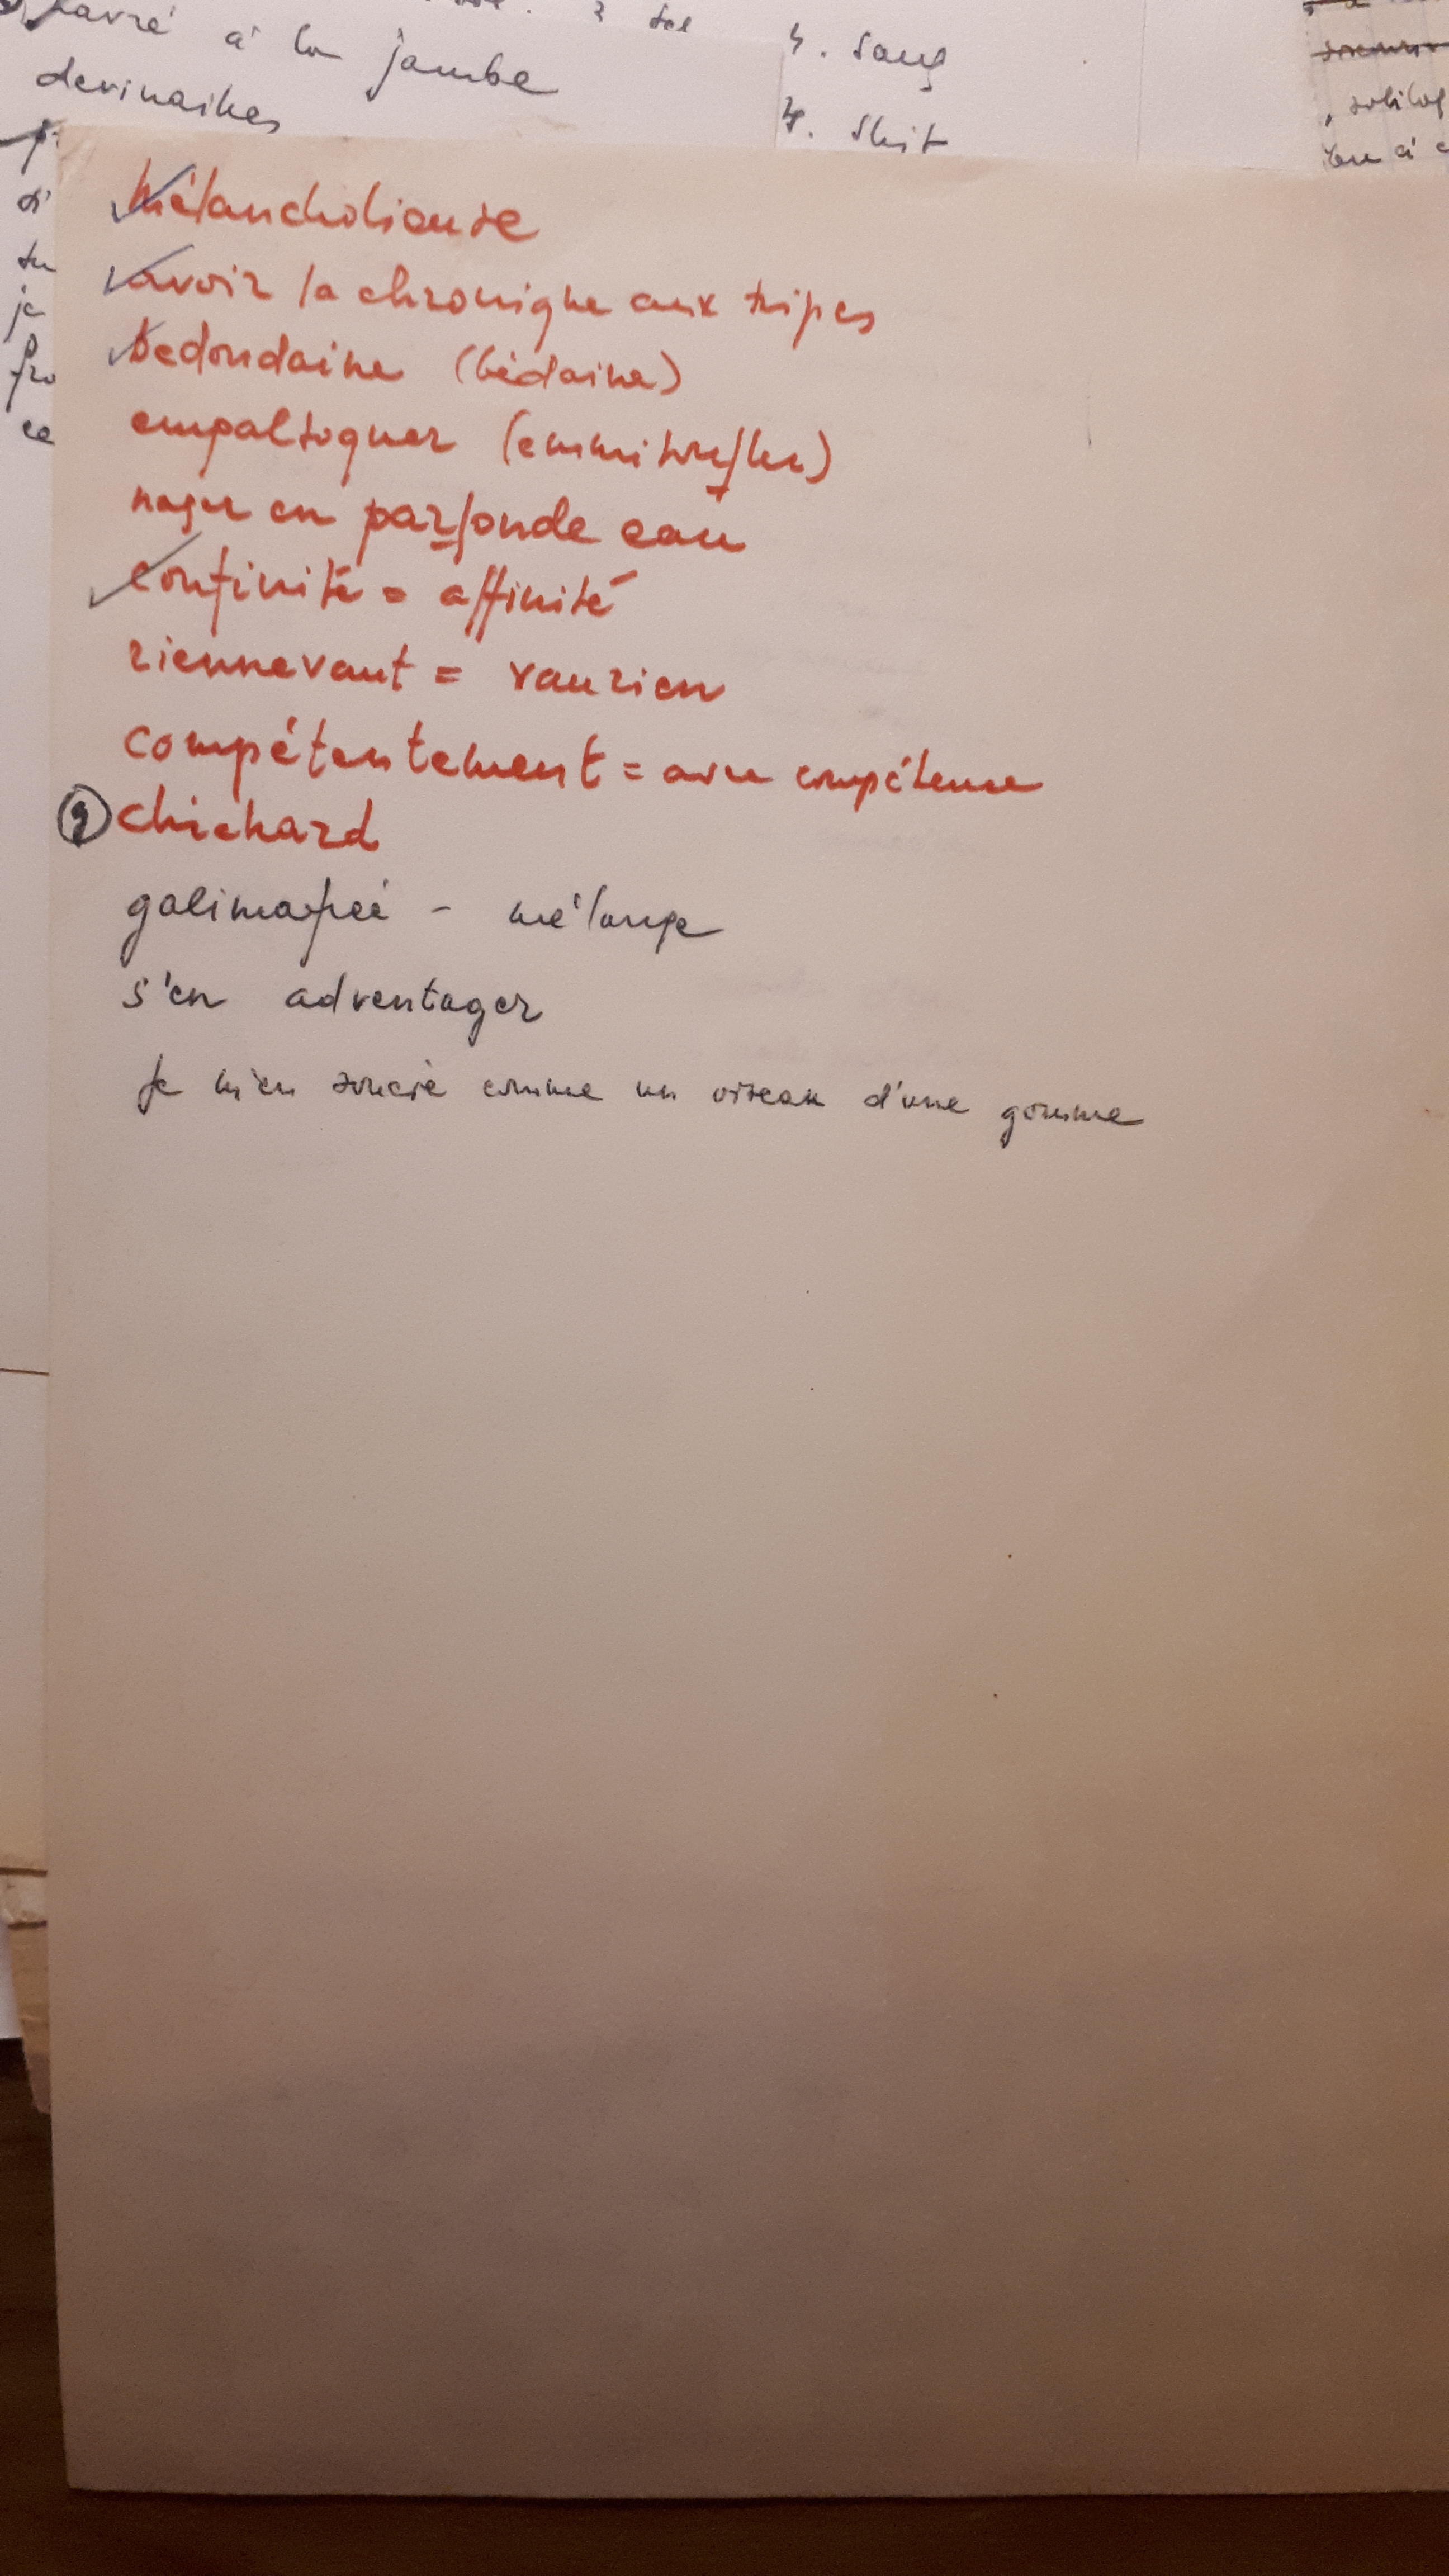 navré à la jambe
devinailles
4. sang
4. Shit
mélancholieuse
avoir la chronique aux tripes
bedondaine (bédaine)
empaltoquer (emmitoufler)
nager en parfonde eau
confinité = affinité
riennevaut = vaurien
compétentement = avec compétence
chichard
galimafrée - mélange
s'en adventager
je m'en soucie comme un oiseau d'une gomme